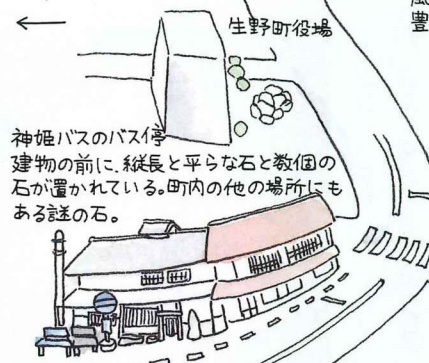 生野町役場
風
豊
神姫バスのバス停
建物の前に、縦長と平らな石と数個の
石が置かれている。町内の他の場所にも
ある謎の石。